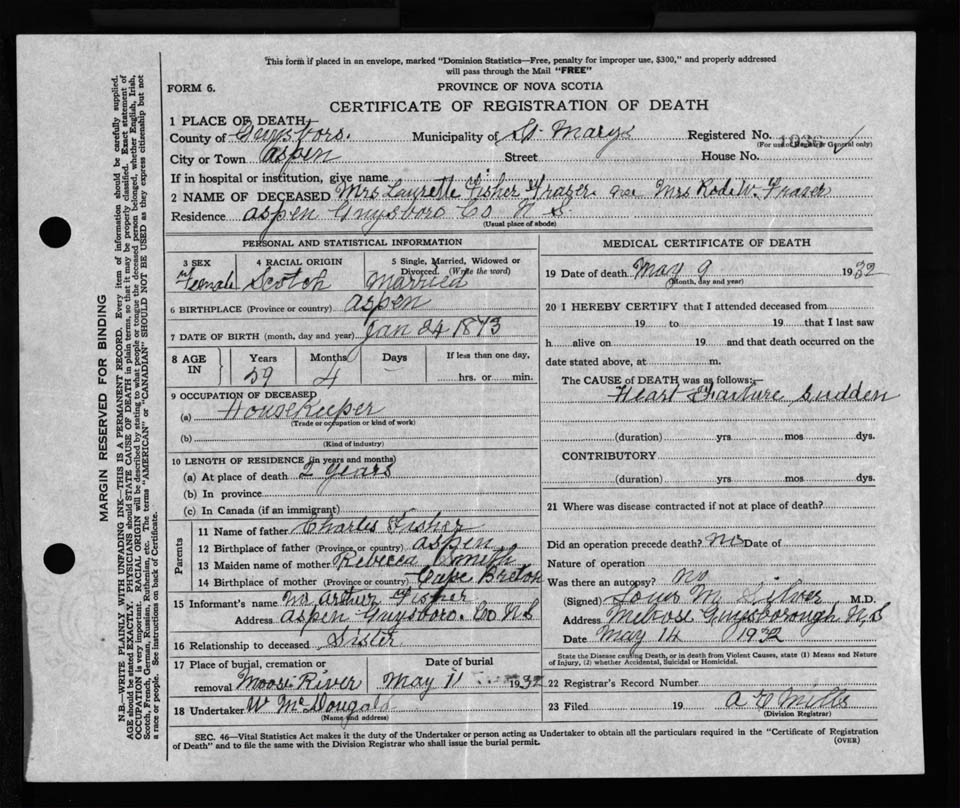 This form if placed in an envelope, marked "Dominion Statistics—Free, penalty for improper use, $300," and properly addressed
will pass through the Mail "FREE"
FORM 6.
PROVINCE OF NOVA SCOTIA
CERTIFICATE OF REGISTRATION OF DEATH
1 PLACE OF DEATH
County of Guysboro. Municipality of St. Marys Registered No.
(For use of Registrar General only)
City or Town Aspen Street House No.
If in hospital or institution, give name
2 NAME OF DECEASED Mrs Laurette Fisher Frazer Mrs Rod. W. Frazer
Residence Aspen Guysboro Co N S.
(Usual place of abode)
PERSONAL AND STATISTICAL INFORMATION
3 SEX 4 RACIAL ORIGIN 5 Single, Married, Widowed or
Divorced. (Write the word)
Female Scotch Married
6 BIRTHPLACE (Province or country) Aspen
7 DATE OF BIRTH (month, day and year) Jan 24 1873
8 AGE IN Years Months Days If less than one day,
59 4 hrs. or min.
9 OCCUPATION OF DECEASED
(a) Housekeeper
(Trade or occupation or kind of work)
(b)
(Kind of industry)
10 LENGTH OF RESIDENCE (in years and months)
(a) At place of death 2 years
(b) In province
(c) In Canada (if an immigrant)
Parents
11 Name of father Charles Fisher
12 Birthplace of father (Province or country) Aspen
13 Maiden name of mother Rebecca Smith
14 Birthplace of mother (Province or country) Cape Breton
15 Informant's name Arthur Fisher
Address Aspen Guysboro. Co N S
16 Relationship to deceased Sister
17 Place of burial, cremation or Date of burial
removal Moose River May 11 1932
18 Undertaker W McDougald
(Name and address)
MEDICAL CERTIFICATE OF DEATH
19 Date of death May 9 1932
(Month, day and year)
20 I HEREBY CERTIFY that I attended deceased from
19 to 19 that I last saw
h alive on 19 and that death occurred on the
date stated above, at m.
The CAUSE OF DEATH was as follows:—
Heart Failure Sudden
(duration) yrs mos dys.
CONTRIBUTORY
(duration) yrs mos dys.
21 Where was disease contracted if not at place of death?
Did an operation precede death? No Date of
Nature of operation
Was there an autopsy? No
(Signed) Louis M. Silver M.D.
Address Melrose Guysborough N.S
Date May 14 1932
State the Disease causing Death, or in death from Violent Causes, state (1) Means and Nature
of Injury, (2) whether Accidental, Suicidal or Homicidal.
22 Registrar's Record Number
23 Filed 19 A E Mills
(Division Registrar)
SEC. 46—Vital Statistics Act makes it the duty of the Undertaker or person acting as Undertaker to obtain all the particulars required in the "Certificate of Registration
of Death" and to file the same with the Division Registrar who shall issue the burial permit.
(OVER)
MARGIN RESERVED FOR BINDING
N.B.—WRITE PLAINLY WITH UNFADING INK—THIS IS A PERMANENT RECORD. Every item of information should be carefully supplied.
AGE should be stated EXACTLY. PHYSICIANS should STATE CAUSE OF DEATH in plain terms, so that it may be properly classified. Exact statement of
OCCUPATION is very important. RACIAL ORIGIN will be described by stating to what people or tongue the deceased person belonged, whether English, Irish,
Scotch, French, German, Russian, Ruthenian, etc. The terms "AMERICAN" or "CANADIAN" SHOULD NOT BE USED as they express citizenship but not
a race or people. See instructions on back of Certificate.